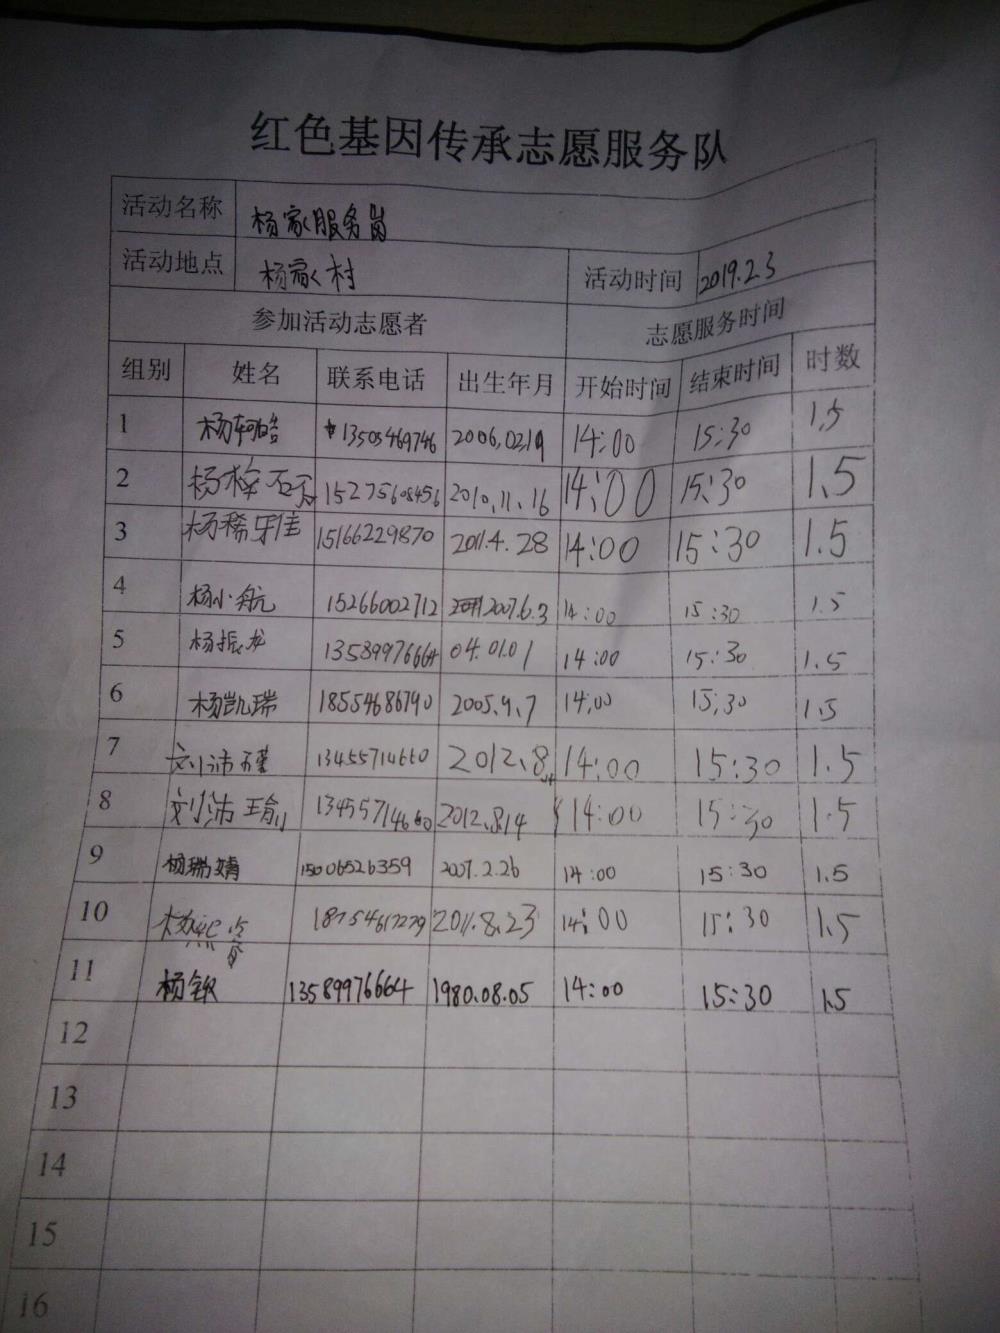 红色基因传承志愿服务队
活动名称 杨家服务岗
活动地点 杨家村 活动时间 2019.2.3
参加活动志愿者 志愿服务时间
组别 姓名 联系电话 出生年月 开始时间 结束时间 时数
1 杨轲皓 13505469746 2006.02.19 14:00 15:30 1.5
2 杨梓 15275608456 2010.11.16 14:00 15:30 1.5
3 杨稀 15166229870 2011.4.28 14:00 15:30 1.5
4 杨小航 15266002712 2007.6.3 14:00 15:30 1.5
5 杨振龙 13589976664 04.01.01 14:00 15:30 1.5
6 杨凯瑞 18554686790 2005.9.7 14:00 15:30 1.5
7 刘沛瑾 13455714660 2012.8.14 14:00 15:30 1.5
8 刘沛瑜 13455714660 2012.8.14 14:00 15:30 1.5
9 杨瑞婧 15006526359 2007.2.26 14:00 15:30 1.5
10 杨熙 18754617279 2011.8.23 14:00 15:30 1.5
11 杨钦 13589976664 1980.08.05 14:00 15:30 1.5
12
13
14
15
16